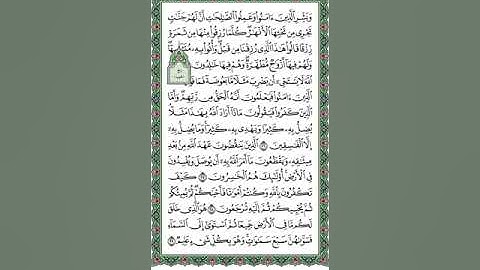 وَبَشِّرِ ٱلَّذِينَ ءَامَنُوا۟ وَعَمِلُوا۟ ٱلصَّٰلِحَٰتِ أَنَّ لَهُمْ جَنَّٰتٍ
تَجْرِى مِن تَحْتِهَا ٱلْأَنْهَٰرُ كُلَّمَا رُزِقُوا۟ مِنْهَا مِن ثَمَرَةٍ
رِّزْقًا قَالُوا۟ هَٰذَا ٱلَّذِى رُزِقْنَا مِن قَبْلُ وَأُتُوا۟ بِهِۦ مُتَشَٰبِهًا
وَلَهُمْ فِيهَآ أَزْوَٰجٌ مُّطَهَّرَةٌ وَهُمْ فِيهَا خَٰلِدُونَ
ٱللَّهَ لَا يَسْتَحْىِۦٓ أَن يَضْرِبَ مَثَلًا مَّا بَعُوضَةً فَمَا
ٱلَّذِينَ ءَامَنُوا۟ فَيَعْلَمُونَ أَنَّهُ ٱلْحَقُّ مِن رَّبِّهِمْ وَأَمَّا
ٱلَّذِينَ كَفَرُوا۟ فَيَقُولُونَ مَاذَآ أَرَادَ ٱللَّهُ بِهَٰذَا مَثَلًا
يُضِلُّ بِهِۦ كَثِيرًا وَيَهْدِى بِهِۦ كَثِيرًا وَمَا يُضِلُّ بِهِۦٓ
إِلَّا ٱلْفَٰسِقِينَ ٢٦ ٱلَّذِينَ يَنقُضُونَ عَهْدَ ٱللَّهِ مِنۢ بَعْدِ
مِيثَٰقِهِۦ وَيَقْطَعُونَ مَآ أَمَرَ ٱللَّهُ بِهِۦٓ أَن يُوصَلَ وَيُفْسِدُونَ
فِى ٱلْأَرْضِ أُو۟لَٰٓئِكَ هُمُ ٱلْخَٰسِرُونَ ٢٧ كَيْفَ
تَكْفُرُونَ بِٱللَّهِ وَكُنتُمْ أَمْوَٰتًا فَأَحْيَٰكُمْ ثُمَّ يُمِيتُكُمْ
ثُمَّ يُحْيِيكُمْ ثُمَّ إِلَيْهِ تُرْجَعُونَ ٢٨ هُوَ ٱلَّذِى خَلَقَ
لَكُم مَّا فِى ٱلْأَرْضِ جَمِيعًا ثُمَّ ٱسْتَوَىٰٓ إِلَى ٱلسَّمَآءِ
فَسَوَّىٰهُنَّ سَبْعَ سَمَٰوَٰتٍ وَهُوَ بِكُلِّ شَىْءٍ عَلِيمٌ ٢٩